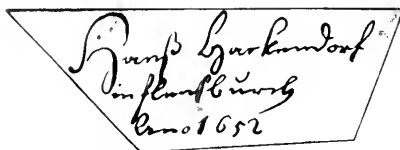 Hanß Hackendorf
in flensburch
Anno 1652